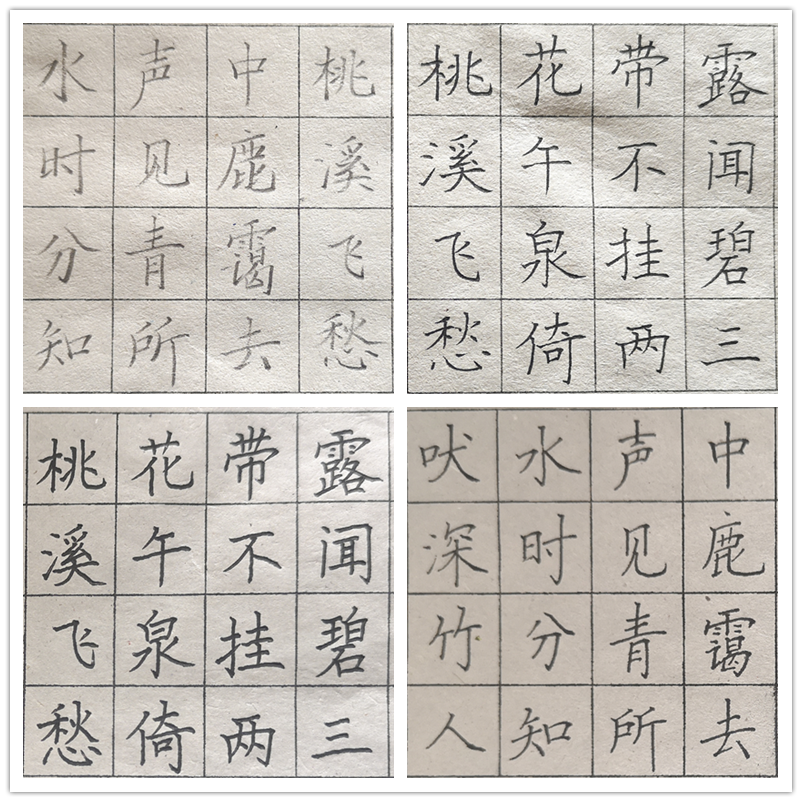 水声中桃
时见鹿溪
分青霭飞
知所去愁
桃花带露
溪午不闻
飞泉挂碧
愁倚两三
桃花带露
溪午不闻
飞泉挂碧
愁倚两三
吠水声中
深时见鹿
竹分青霭
人知所去